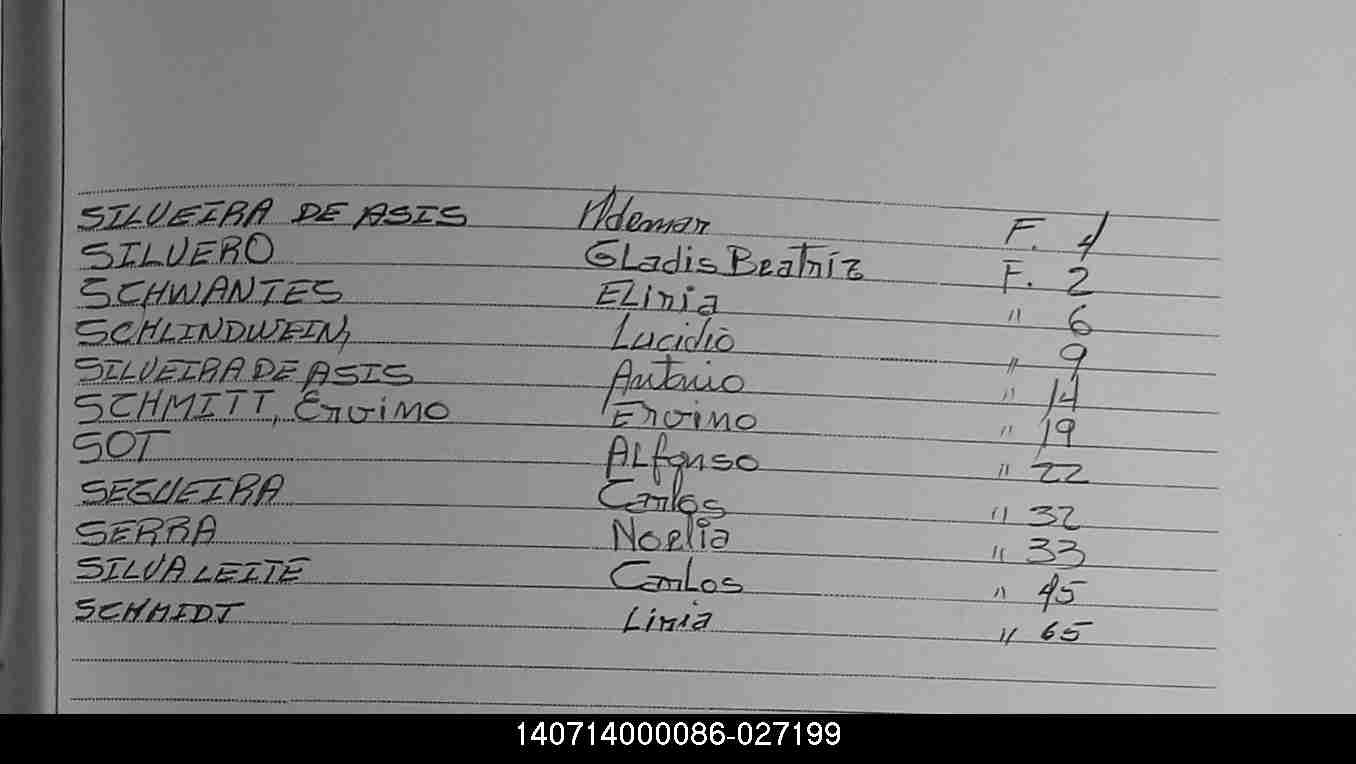 SILVEIRA DE ASIS Ademar F. 1
SILVERO GLadis Beatriz F. 2
SCHWANTES ELiria " 6
SCHLINDWEIN, Lucidio " 9
SILVEIRA DE ASIS Antonio " 14
SCHMITT, Ervimo Ervimo " 19
SOT ALfonso " 22
SEGUEIRA Carlos " 32
SERRA Noelia " 33
SILVA LEITE CarLos " 45
SCHMIDT Liria " 65
140714000086-027199